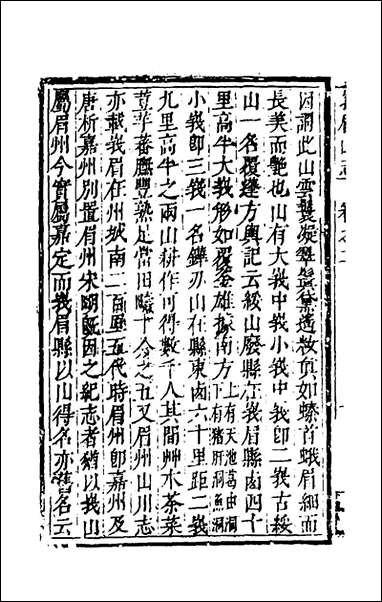 山志　卷之
因謂此山雲鬘凝翠鬒黛遙妝真如螓首蛾眉細而
長美而艷也山有大峩中峩小峩中峩即二峩古綏
山一名覆蓬方輿記云綏山廢縣在峩眉縣鹵四十
里高半大峩形如覆釜雄據南方上有天池葛由洞
下有猪肝洞魚洞
小峩即三峩一名鏵刃山在縣東鹵六十里距二峩
九里高半之兩山耕作可得數千人其間艸木茶菜
荳芋蕃廡豐熟足當田疇十分之五又眉州山川志
亦載峩眉在州城南二百里五代時眉州即嘉州及
唐析嘉州別置眉州宋朝既因之紀志者猶以峩山
屬眉州今實屬嘉定而峩眉縣以山得名亦舊名云